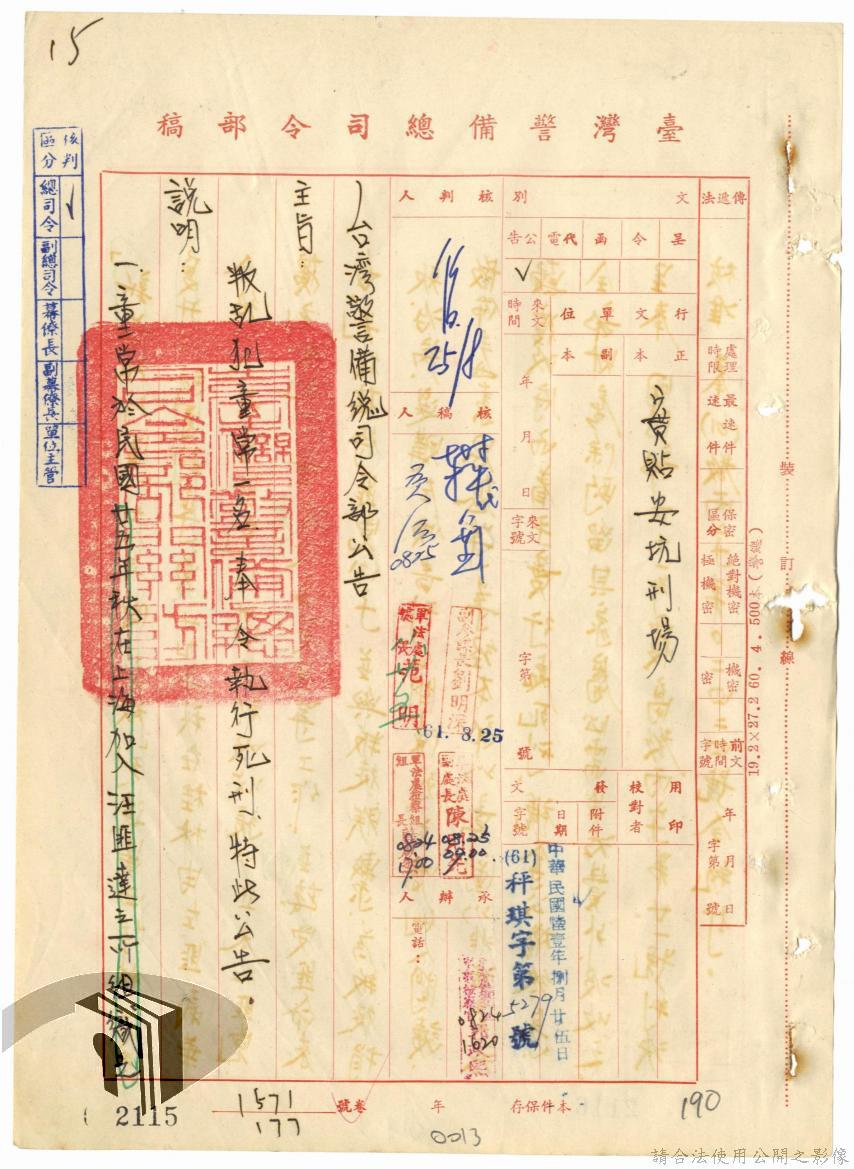 15
臺灣警備總司令部稿
傳遞法
處理時限
最速件
速件
保密區分
絕對機密
極機密
機密
密
前文時間字號
年 月 日
字第 號
文別
呈
令
函
代電
公告
✓
行文單位
正本
副本
貴貼安坑刑場
來文時間
年 月 日
來文字號
字第 號
用印
校對者
發文
附件
日期
中華民國陸壹年捌月廿伍日
字號
(61)秤琪字第5279號
核判人
25/8
核稿人
0825
軍法處
范明
61. 8.25
劉明
軍法處
副處長
陳
08.25
09.00
軍法處檢察組
組長
0824
17.00
承辦人
電話:
0824
1620
台灣警備總司令部公告
主旨:
叛亂犯童常一名奉 令執行死刑、特此公告。
說明:
一、童常於民國廿五年秋在上海加入汪匪達之所組織之
核判區分
總司令
✓
副總司令
幕僚長
副幕僚長
單位主管
裝訂線
19.2×27.2 60. 4. 500本
本件保存 年
卷號
1571
177
2115
0013
190
請合法使用公開之影像